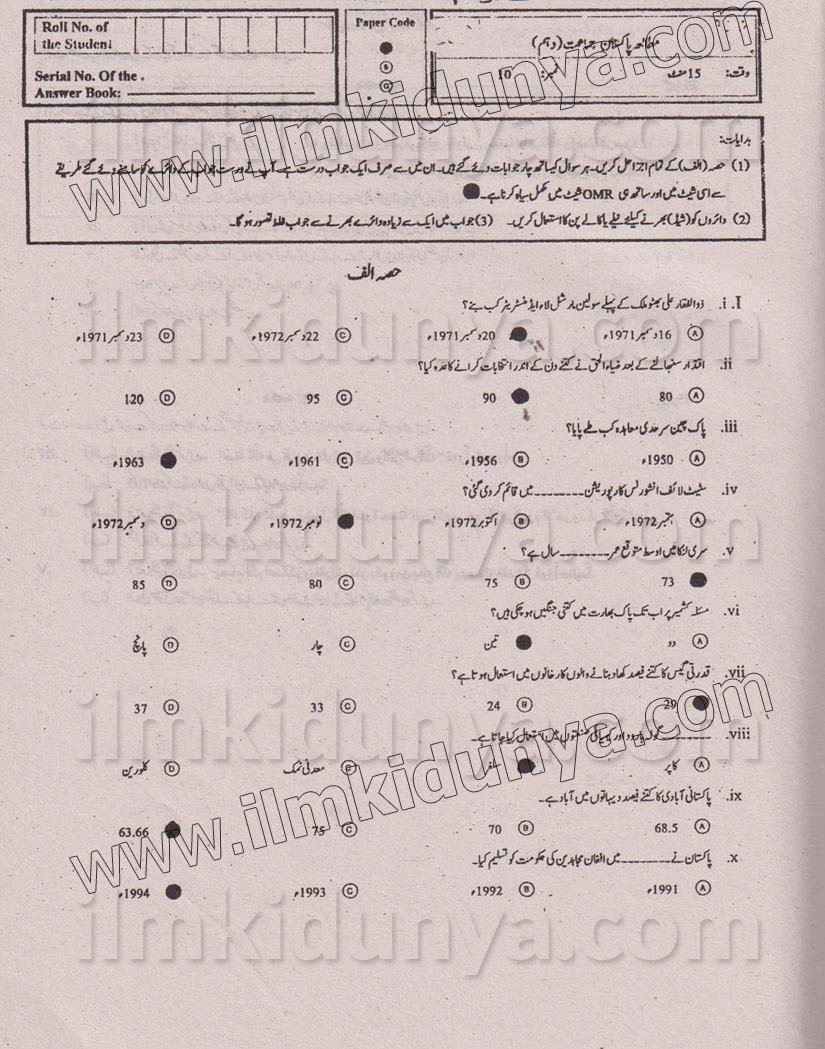 Roll No. of
the Student
Serial No. Of the .
Answer Book:
Paper Code
B
C
مطالعہ پاکستان جماعت (دہم)
وقت: 15 منٹ نمبر: 10
www.ilmkidunya.com
ہدایات:
(1) حصہ (الف) کے تمام اجزا حل کریں۔ ہر سوال کیساتھ چار جوابات دئے گئے ہیں۔ ان میں سے صرف ایک جواب درست ہے۔ آپ نے درست جواب کے دائرے کو سامنے دئے گئے طریقے
سے اسی شیٹ میں اور ساتھ ہی OMR شیٹ میں مکمل سیاہ کرنا ہے۔
(2) دائروں کو (شیڈ) بھرنے کیلئے نیلے یا کالے پن کا استعمال کریں۔ (3) جواب میں ایک سے زیادہ دائرے بھرنے سے جواب غلط تصور ہوگا۔
حصہ الف
I. i. ذوالفقار علی بھٹو ملک کے پہلے سولین مارشل لاء ایڈمنسٹریٹر کب بنے؟
A 16 دسمبر 1971ء 20 دسمبر 1971ء C 22 دسمبر 1972ء D 23 دسمبر 1971ء
ii. اقتدار سنبھالنے کے بعد ضیاء الحق نے کتنے دن کے اندر انتخابات کرانے کا وعدہ کیا؟
A 80 90 C 95 D 120
iii. پاک چین سرحدی معاہدہ کب طے پایا؟
A 1950ء B 1956ء C 1961ء 1963ء
iv. سٹیٹ لائف انشورنس کارپوریشن ۔۔۔۔۔۔۔۔ میں قائم کر دی گئی؟
A ستمبر 1972ء B اکتوبر 1972ء نومبر 1972ء D دسمبر 1972ء
v. سری لنکا میں اوسط متوقع عمر ۔۔۔۔۔۔۔۔ سال ہے؟
73 B 75 C 80 D 85
vi. مسئلہ کشمیر پر اب تک پاک بھارت میں کتنی جنگیں ہو چکی ہیں؟
A دو تین C چار D پانچ
vii. قدرتی گیس کا کتنے فیصد کھاد بنانے والوں کارخانوں میں استعمال ہوتا ہے؟
29 B 24 C 33 D 37
viii. ۔۔۔۔۔۔۔۔ گولہ بارود اور کیمیائی صنعتوں میں استعمال کیا جاتا ہے۔
A کاپر سلفر C معدنی نمک D کلورین
ix. پاکستانی آبادی کا کتنے فیصد دیہاتوں میں آباد ہے۔
A 68.5 B 70 C 75 63.66
x. پاکستان نے ۔۔۔۔۔۔۔۔ میں افغان مجاہدین کی حکومت کو تسلیم کیا۔
A 1991ء B 1992ء C 1993ء 1994ء
www.ilmkidunya.com
ilmkidunya.com
ilmkidunya.com
ilmkidunya.com
ilmkidunya.com
ilmkidunya.com
ilmkidunya.com